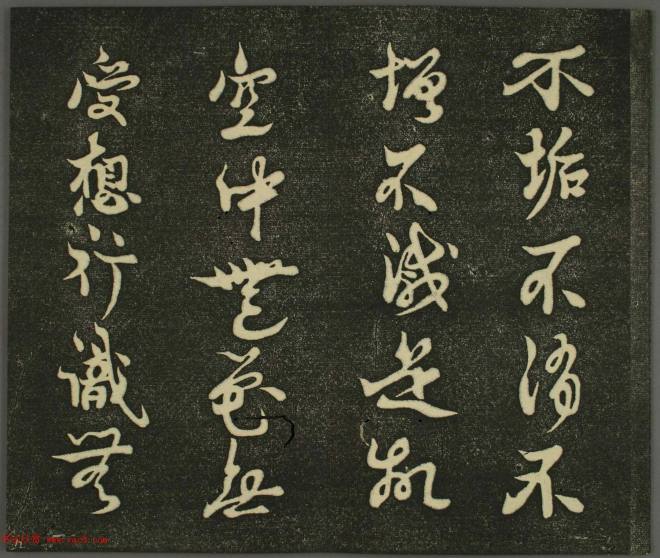 不垢不淨不
增不減是故
空中無色無
受想行識無
www.yac8.com